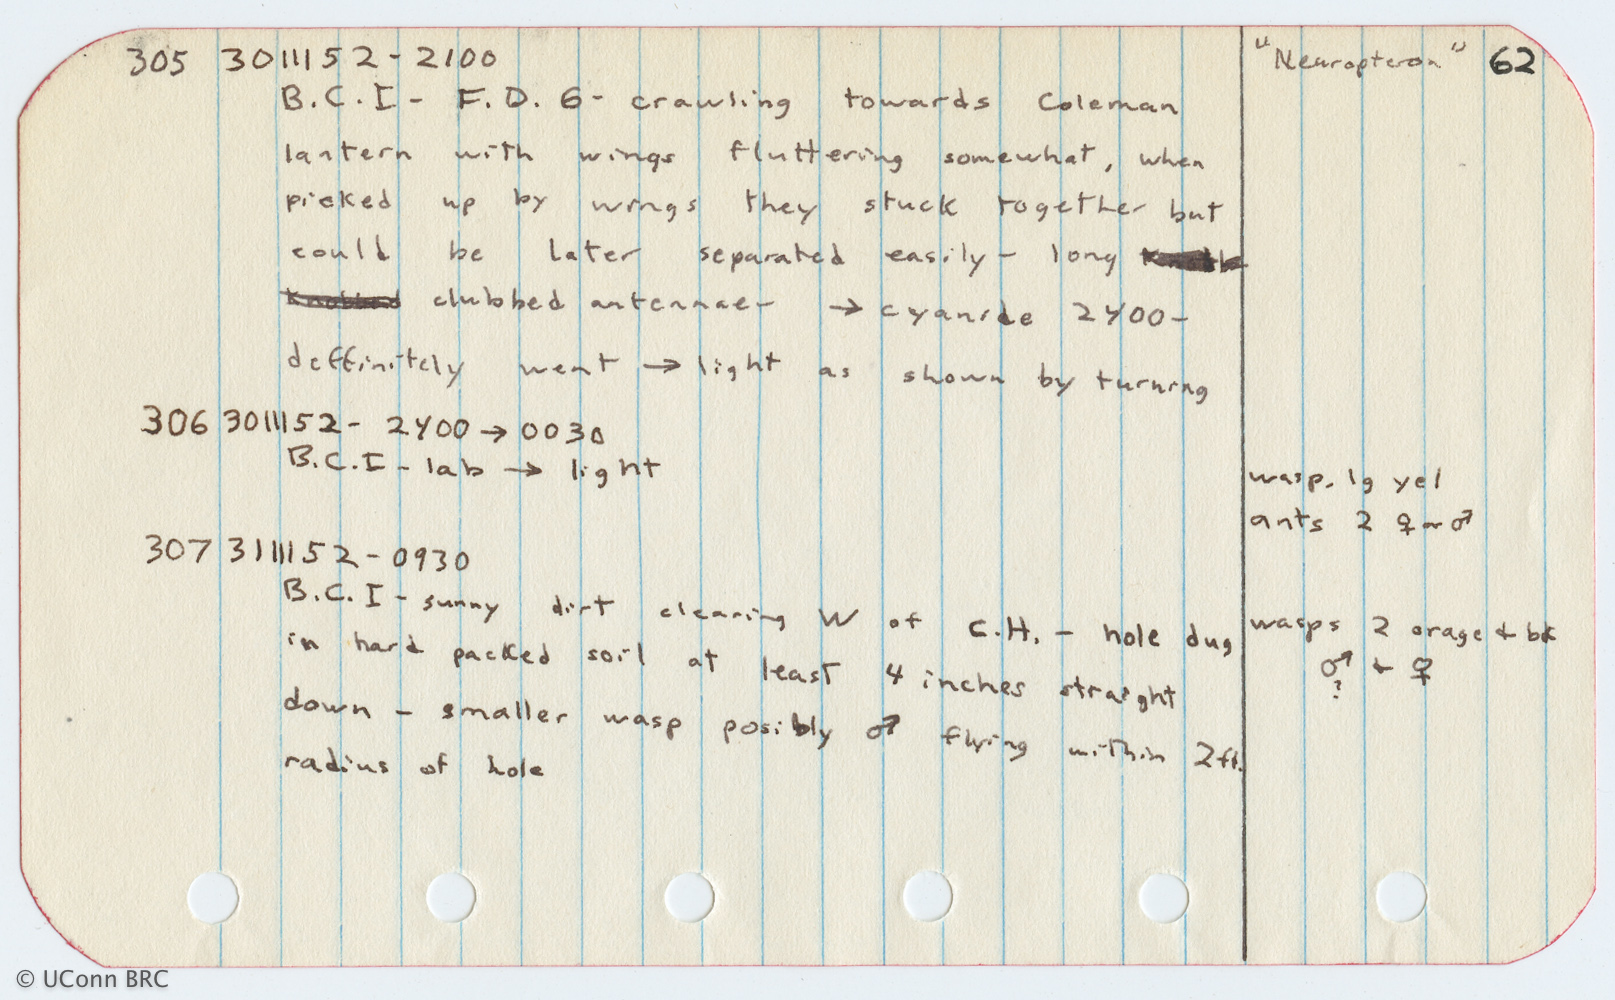 305 30III52 - 2100 "Neuropteron" 62
B.C.I - F.D. 6 - crawling towards Coleman
lantern with wings fluttering somewhat, when
picked up by wings they stuck together but
could be later separated easily - long
clubbed antennae - → cyanide 2400 -
deffinitely went → light as shown by turning
306 30III52 - 2400 → 0030
B.C.I - lab → light
wasp. lg yel
ants 2 ♀ or ♂
307 31III52 - 0930
B.C.I - sunny dirt clearing W of C.H. - hole dug
in hard packed soil at least 4 inches straight
down - smaller wasp posibly ♂ flying within 2ft.
radius of hole
wasps 2 orage + bk
♂ + ♀
?
© UConn BRC